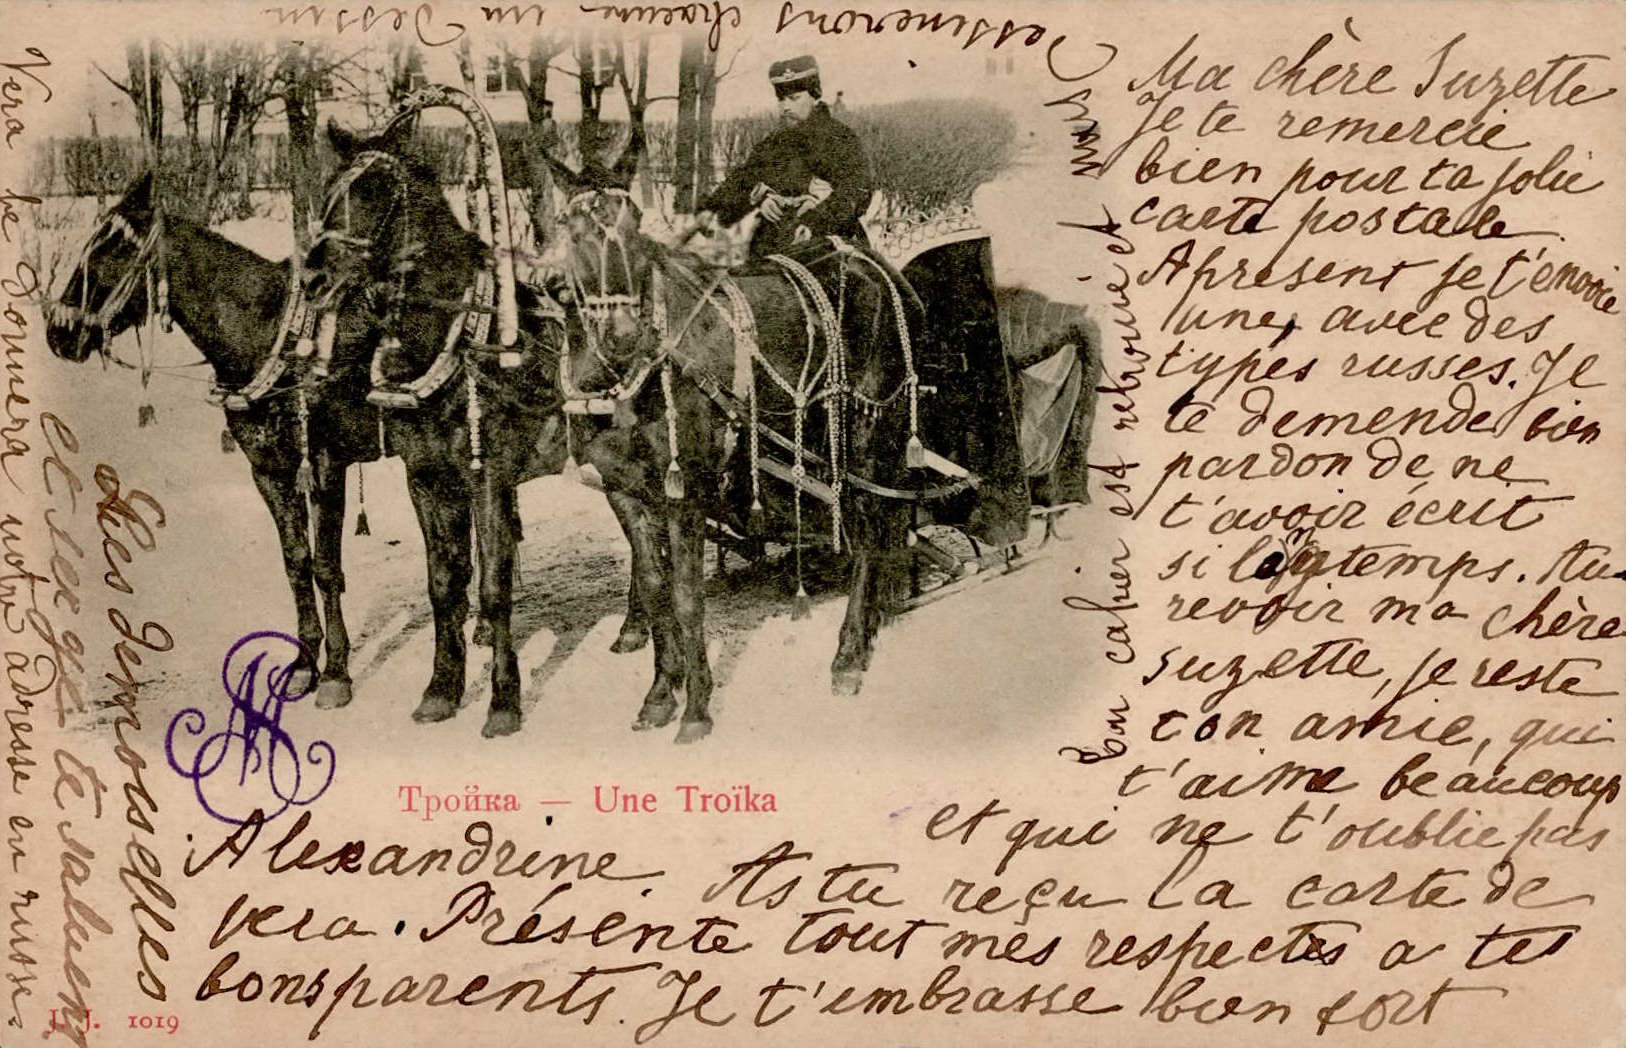 Ma chère Suzette
Je te remercie
bien pour ta jolie
carte postale.
Apresent je t'envoie
une, avec des
types russes. Je
te demende bien
pardon de ne
t'avoir écrit
si longtemps. Au
revoir ma chère
Suzette, je reste
ton amie, qui
t'aime beaucoup
et qui ne t'oublie pas
Alexandrine. As tu reçu la carte de
Vera. Présente tout mes respectes a tes
bons parents. Je t'embrasse bien fort
Ton cahier est retrouvé et nous
dessinerons chacune un dessin
Vera te donnera notre adresse en russe
Les demoiselles
et Serge te saluent
Тройка — Une Troïka
J. J. 1019